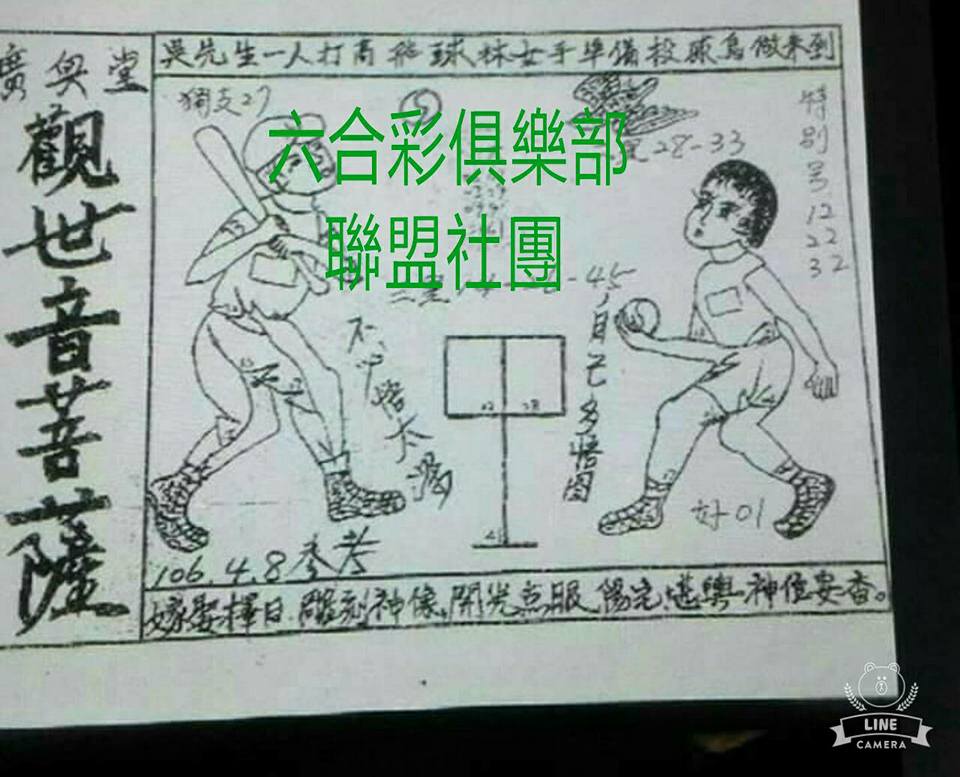 吳先生一人打高飛球林女手準備投球鳥做來到
廣興堂
觀世音菩薩
獨支27
六合彩俱樂部
聯盟社團
28-33
特別号
12
22
32
45
自己多悟圖
22 28
好01
106.4.8參考
嫁娶擇日 雕刻神像 開光点眼 陽宅堪輿 神位安香。
LINE
CAMERA